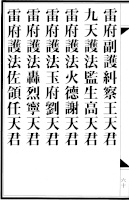 雷府副護糾察王天君
九天護法監生高天君
雷府護法火德謝天君
雷府護法玉府劉天君
雷府護法轟烈寧天君
雷府護法佐領任天君
六十